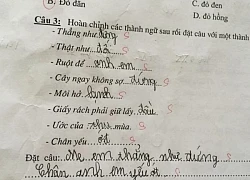 B. Đỏ đắn
C. đỏ đen
D. đỏ hồng
Câu 3: Hoàn chỉnh các thành ngữ sau rồi đặt câu với một thành
- Thẳng như đứng S
- Thật như đá S
- Ruột để anh em S
- Cây ngay không sợ đứng S
- Môi hở lạnh S
- Giấy rách phải giữ lấy đầu S
- Ước của thu mùa. S
- Chân yếu ớt S
Đặt câu: Mẹ em thẳng như đứng
Chân anh em yếu ớt S